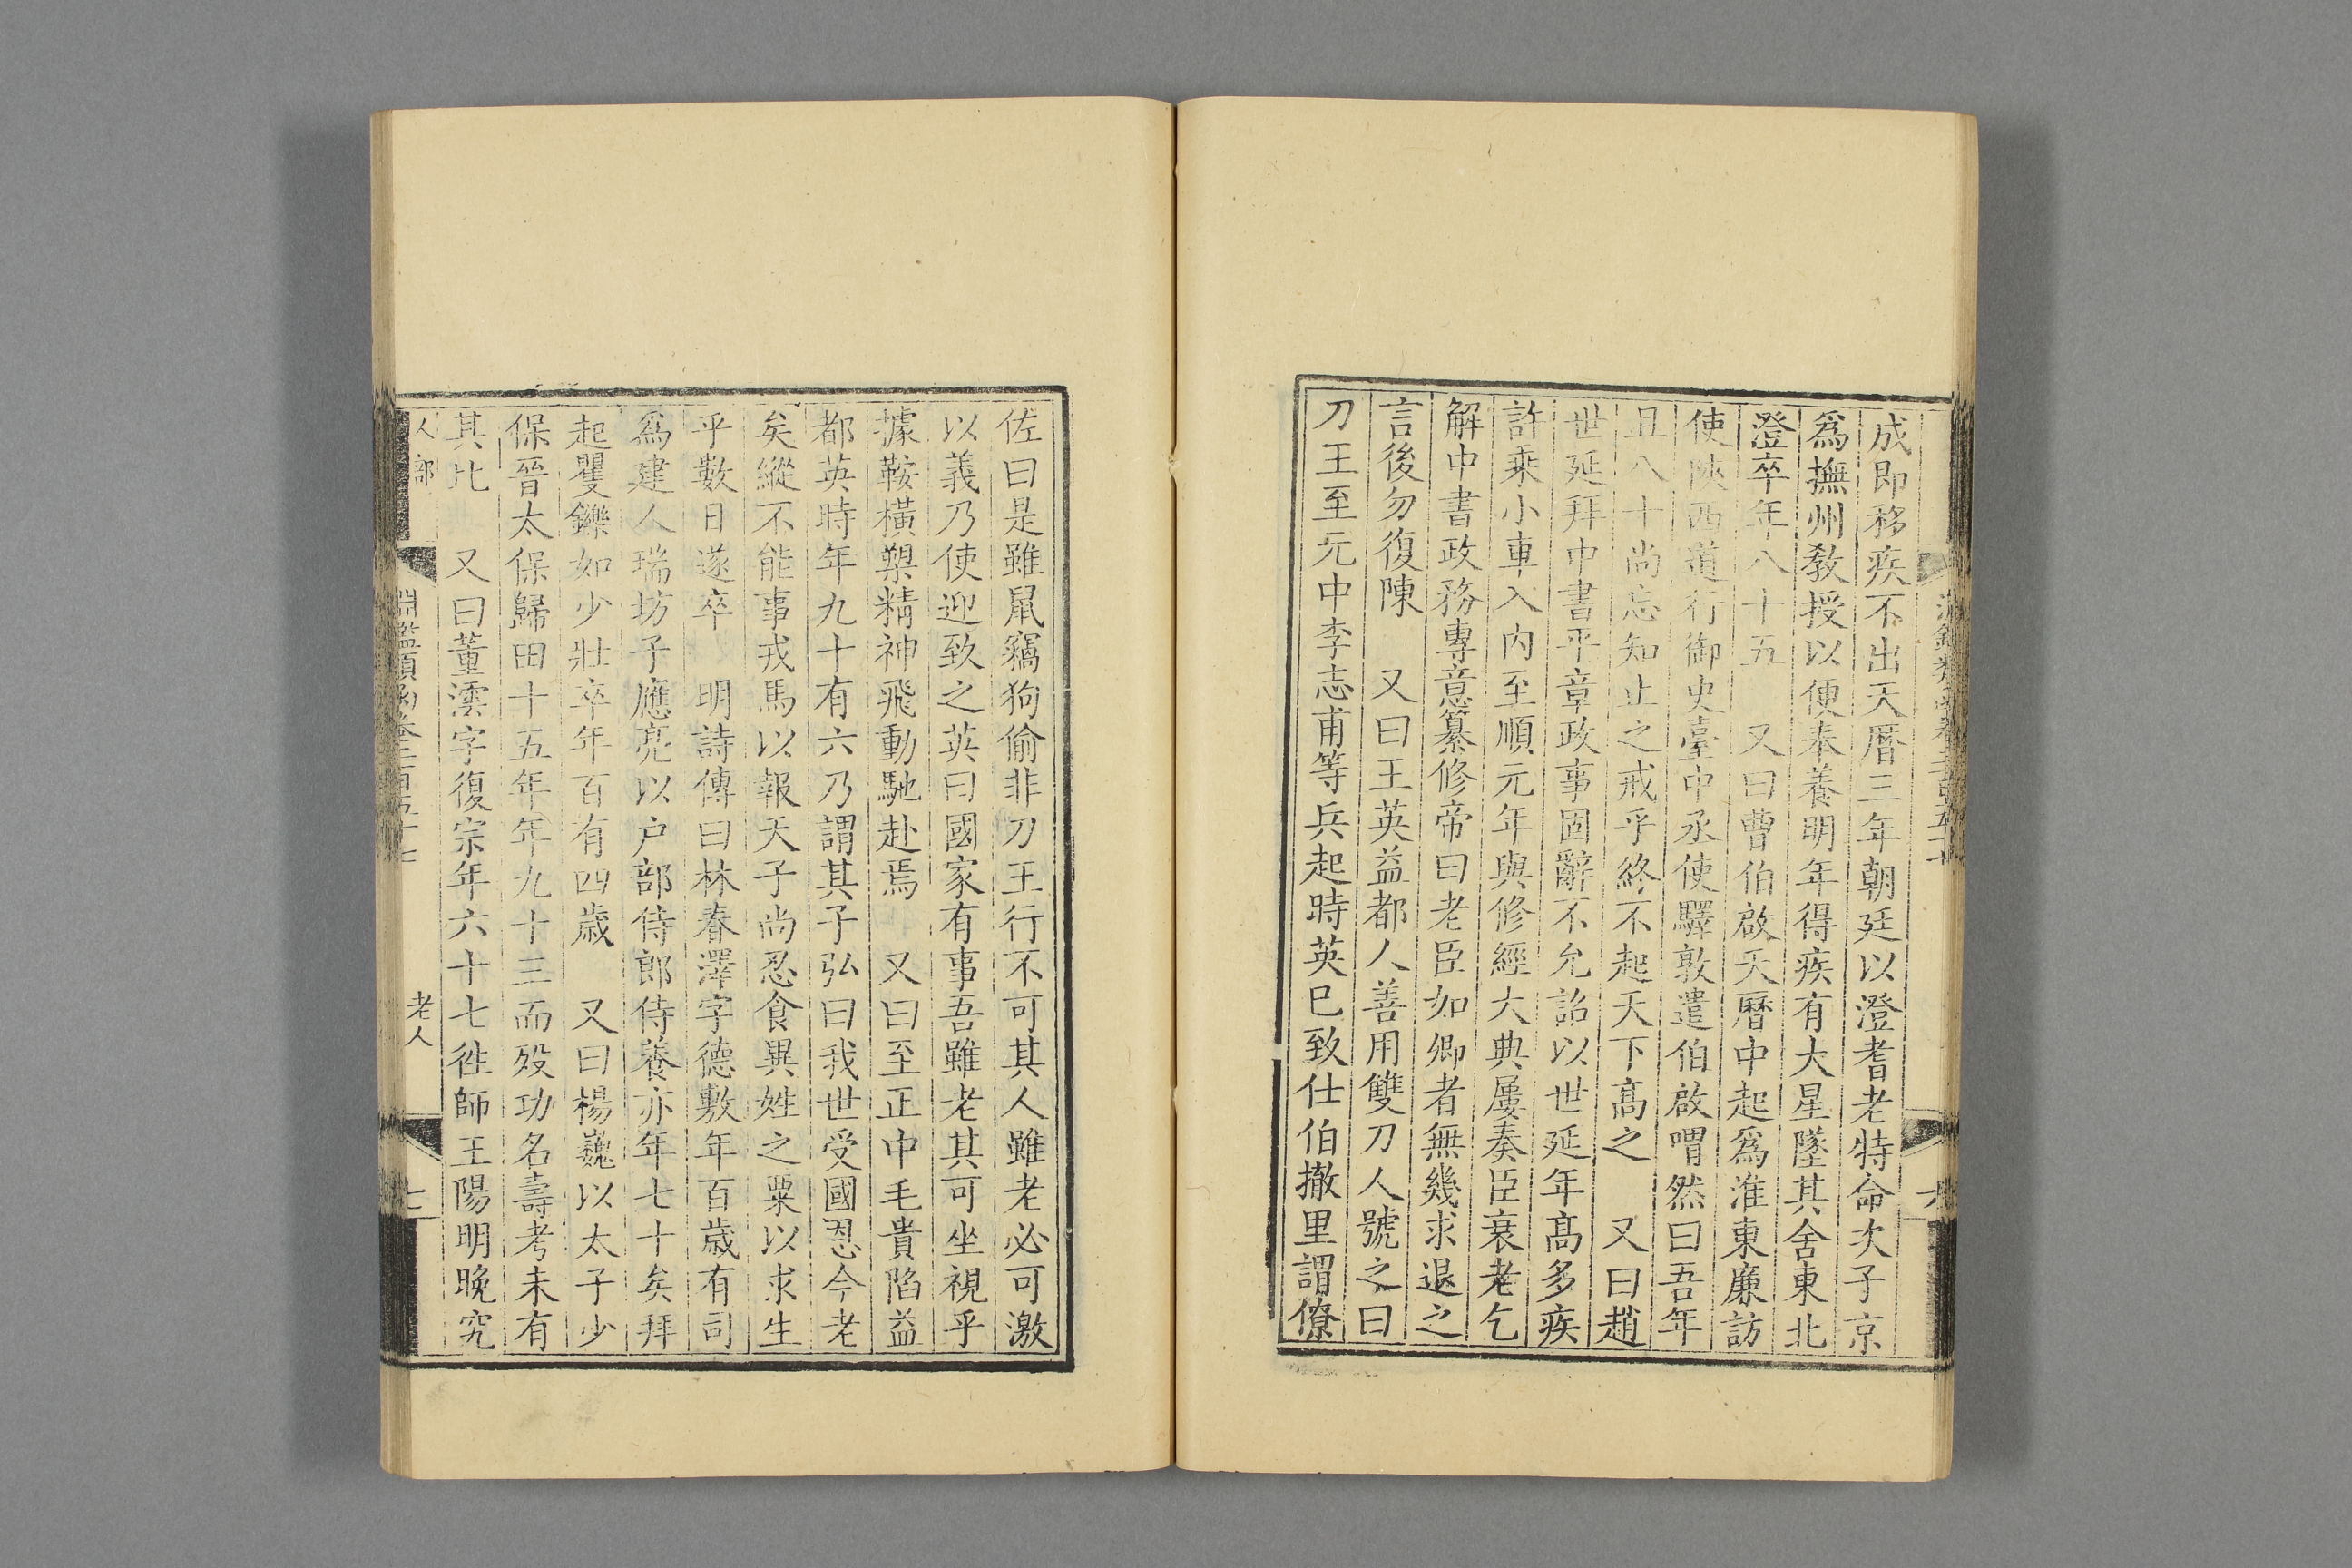 成即移疾不出天曆三年朝廷以澄耆老特命次子京
爲撫州教授以便奉養明年得疾有大星墜其舍東北
澄卒年八十五　又曰曹伯啟天曆中起爲淮東廉訪
使陝西道行御史臺中丞使驛敦遣伯啟喟然曰吾年
且八十尚忘知止之戒乎終不起天下高之　又曰趙
世延拜中書平章政事固辭不允詔以世延年高多疾
許乘小車入內至順元年與修經大典屢奏臣衰老乞
解中書政務專意纂修帝曰老臣如卿者無幾求退之
言後勿復陳　又曰王英益都人善用雙刀人號之曰
刀王至元中李志甫等兵起時英已致仕伯撤里謂僚
佐曰是雖鼠竊狗偷非刀王行不可其人雖老必可激
以義乃使迎致之英曰國家有事吾雖老其可坐視乎
據鞍橫槊精神飛動馳赴焉　又曰至正中毛貴陷益
都英時年九十有六乃謂其子弘曰我世受國恩今老
矣縱不能事戎馬以報天子尚忍食異姓之粟以求生
乎數日遂卒　明詩傳曰林春澤字德敷年百歲有司
爲建人瑞坊子應亮以戶部侍郎侍養亦年七十矣拜
起矍鑠如少壯卒年百有四歲　又曰楊巍以太子少
保晉太保歸田十五年年九十三而歿功名壽考未有
其比　又曰董澐字復宗年六十七徃師王陽明晚究
人部
淵鑑類函卷二百五十七
老人
七